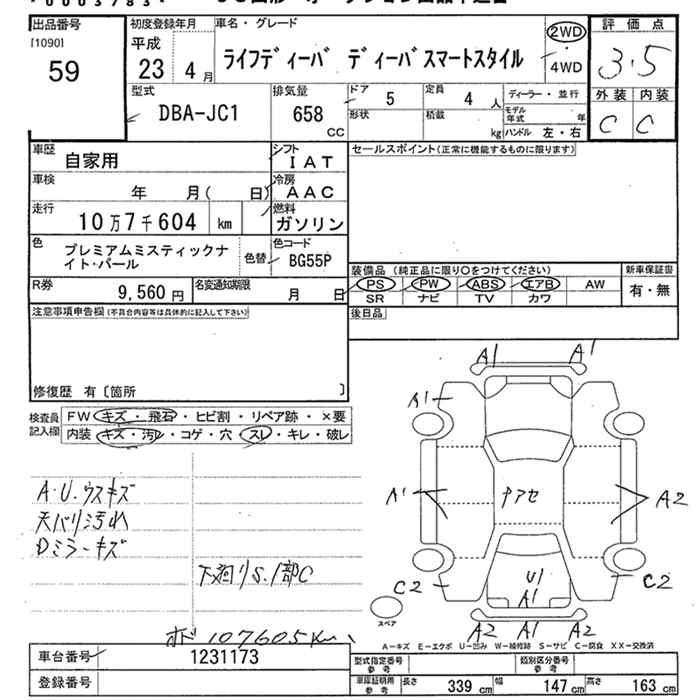 出品番号
[1090]
59
初度登録年月
平成
23 4月
車名・グレード
ライフディーバ ディーバスマートスタイル
2WD
4WD
評価点
3.5
外装 内装
C C
型式
DBA-JC1
排気量
658
CC
ドア
5
定員
4 人
形状
積載
kg
ディーラー・並行
モデル年式 年
ハンドル 左・右
車歴
自家用
シフト
IAT
車検
年 月( 日)
冷房
AAC
走行
10万7千604 km
燃料
ガソリン
色
プレミアムミスティックナ
イト・パール
色替
色コード
BG55P
R券
9,560 円
名変通知期限
月 日
セールスポイント(正常に機能するものに限ります)
装備品 (純正品に限り○をつけてください)
PS PW ABS エアB AW
SR ナビ TV カワ
新車保証書
有・無
後日品
注意事項申告欄(不具合内容等は具体的に記入して下さい)
修復歴 有〔箇所 〕
検査員
記入欄
FW キズ・飛石・ヒビ割・リペア跡・×要
内装 キズ・汚れ・コゲ・穴・スレ・キレ・破レ
A.U.ウスキズ
天バリ汚れ
Dミラーキズ
下廻りS.1部C
オド 107605Km
A1 A1
A1
A1 アアセ A2
C2 U1 C2
A1
A2 A1 A2
スペア
A-キズ E-エクボ U-凹み W-補修跡 S-サビ C-腐食 XX-交換済
車台番号
1231173
登録番号
型式指定番号
参考
類別区分番号
参考
車庫証明用
参考
長さ 339 cm 幅 147 cm 高さ 163 cm